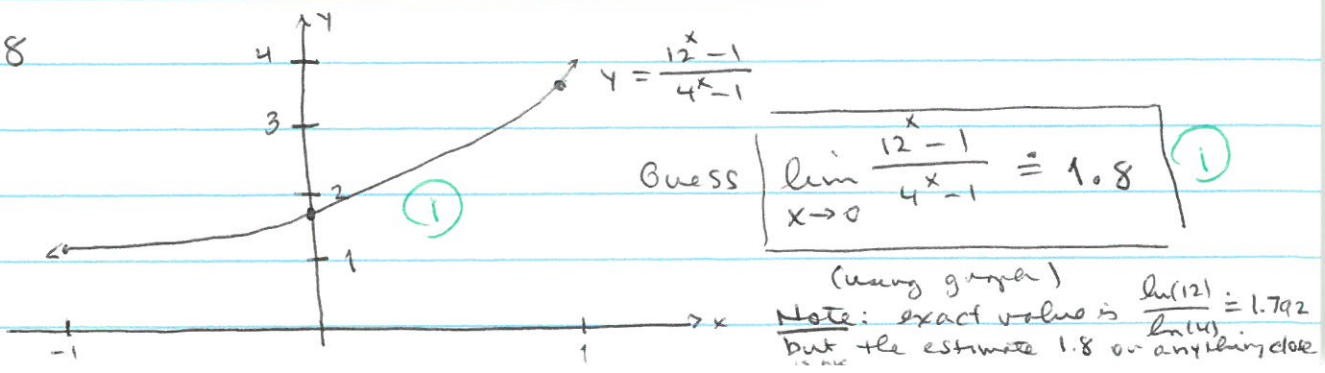 8
y
4
3
2
1
-1
1
x
y = \frac{12^x - 1}{4^x - 1}
①
Guess \lim_{x \to 0} \frac{12^x - 1}{4^x - 1} ≐ 1.8 ①
(using graph)
Note: exact value is \frac{ln(12)}{ln(4)} ≐ 1.792
but the estimate 1.8 or anything close